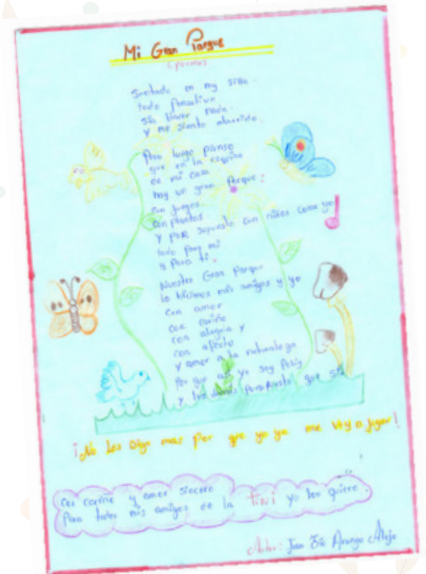 Mi Gran Parque
(poema)
Sentado en my silla.
todo pensativo
sin hacer nada.
y me siento aburrido.
Pero luego pienso
que en la esquina
de mi casa
hay un gran Parque!
con juegos.
con plantas
y por supuesto con niños como yo
todo para mi
y para ti.
Nuestro Gran Parque
lo hicimos mis amigos y yo
con amor
con cariño
con alegria y
con afecto
y amor a la naturaleza
Por que asi yo soy feliz
y los demas que
¡No les digo mas por que yo ya me voy a jugar!
Con cariño y amor sincero
Para todos mis amigos de la TiNi yo los quiero.
Autor: Arango Alejo